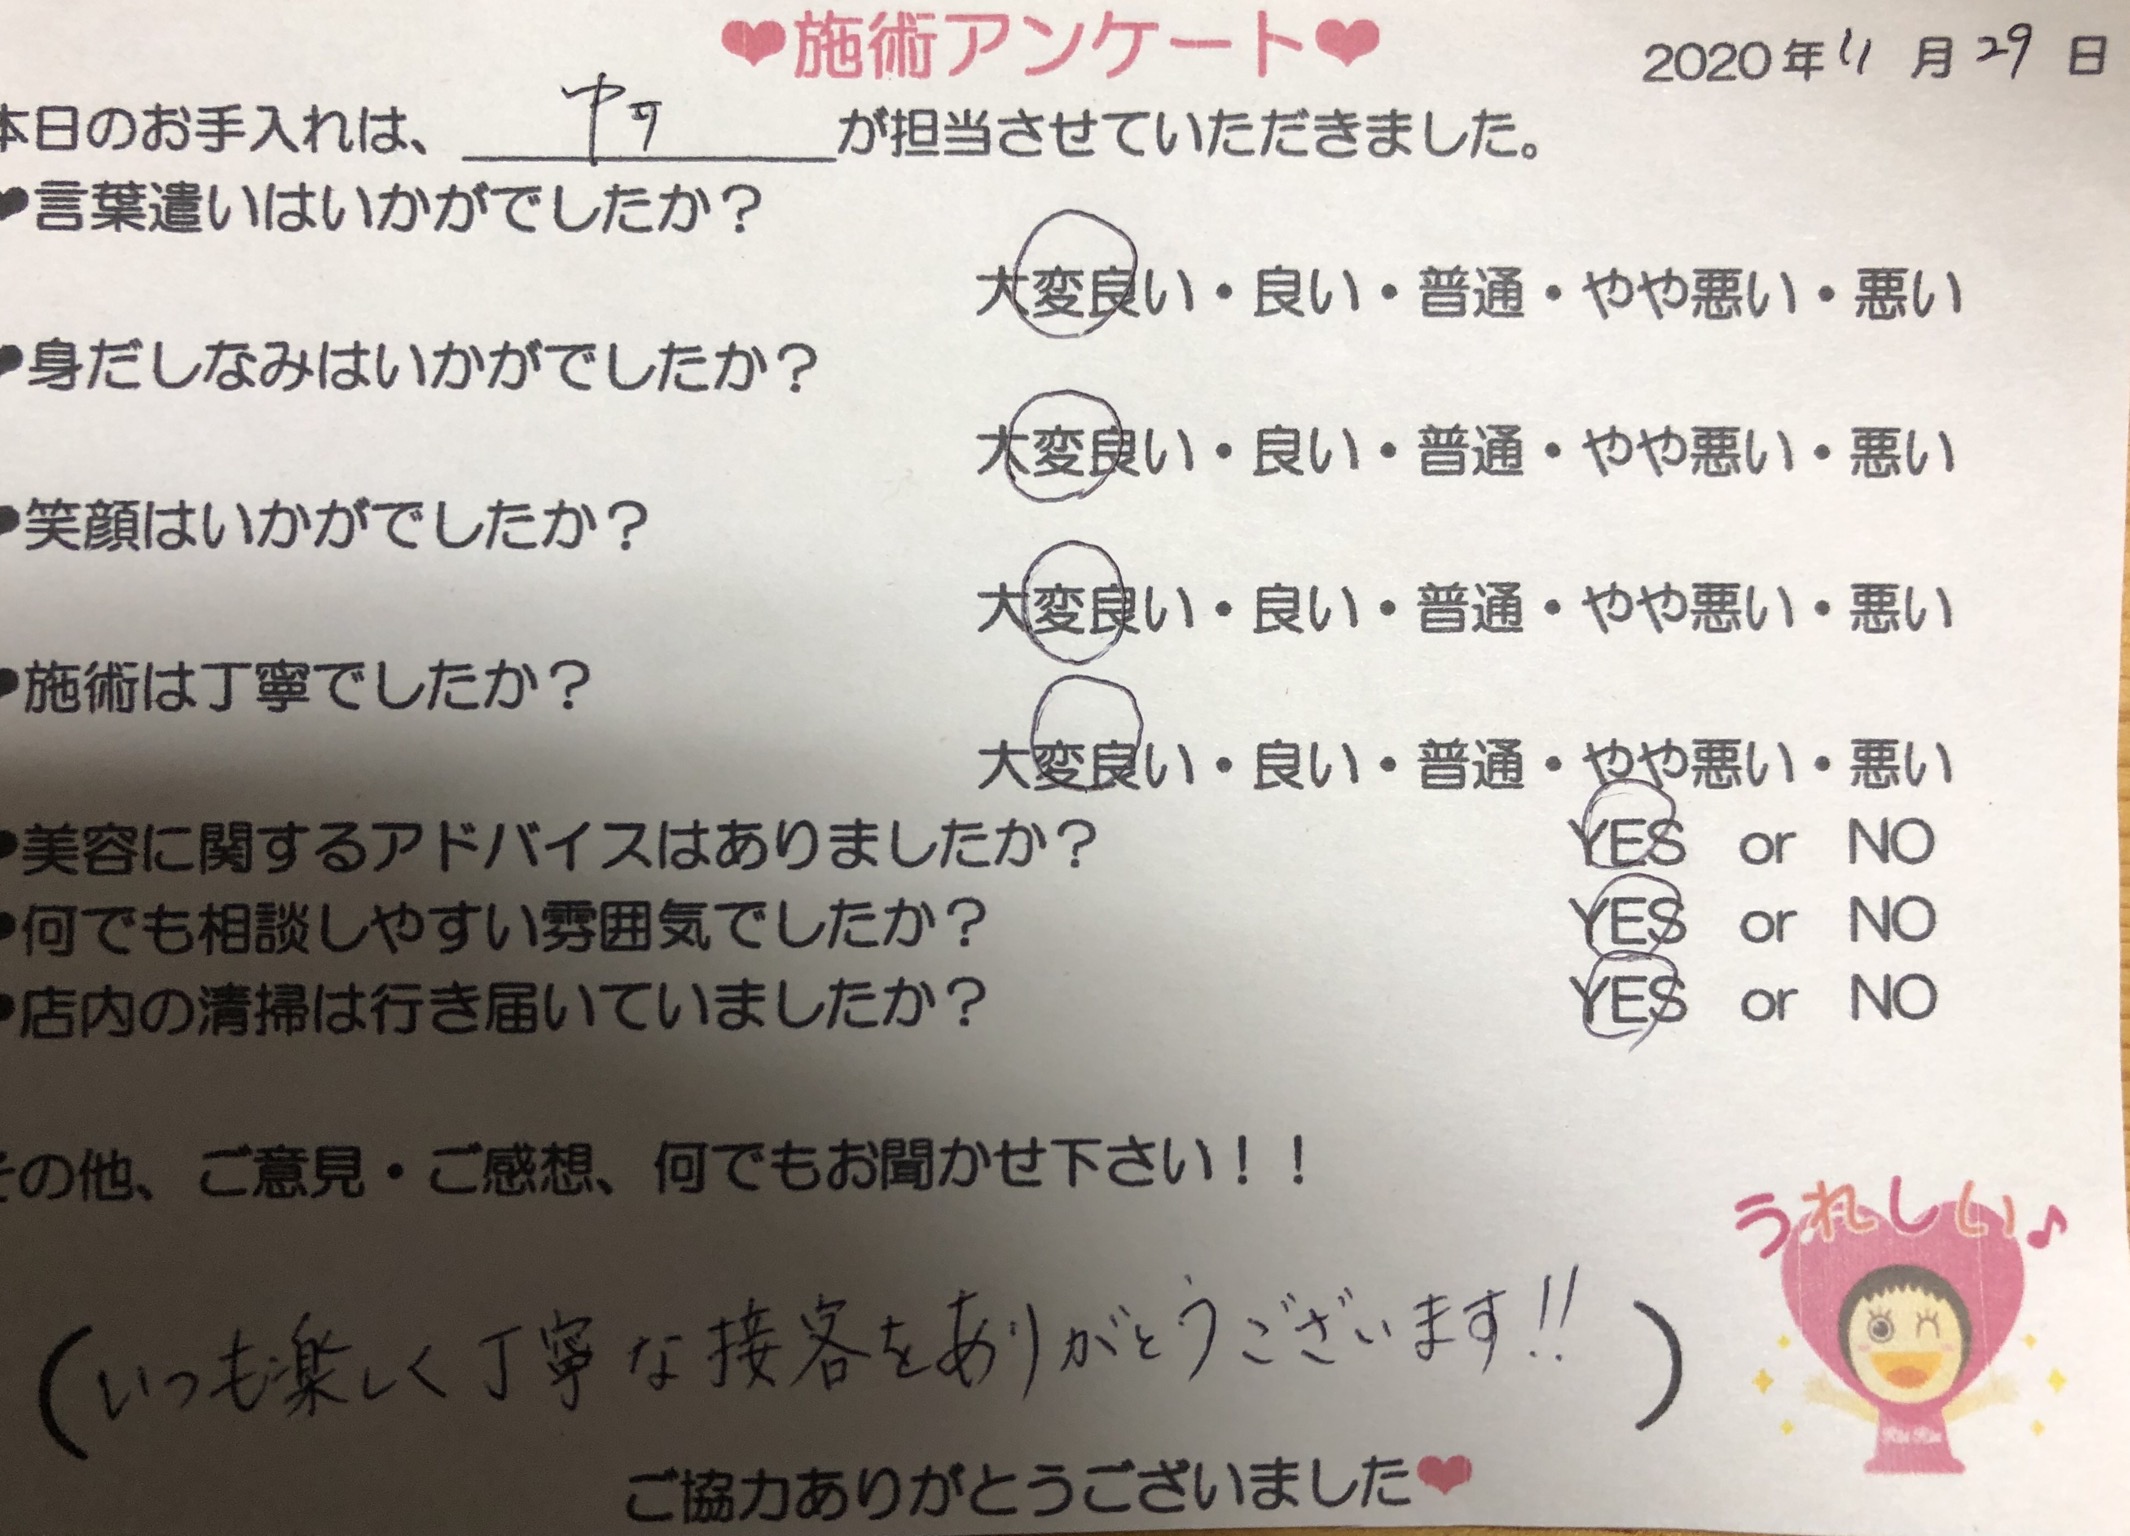 ❤施術アンケート❤
2020年11月29日
本日のお手入れは、が担当させていただきました。
❤言葉遣いはいかがでしたか？
大変良い・良い・普通・やや悪い・悪い
❤身だしなみはいかがでしたか？
大変良い・良い・普通・やや悪い・悪い
❤笑顔はいかがでしたか？
大変良い・良い・普通・やや悪い・悪い
❤施術は丁寧でしたか？
大変良い・良い・普通・やや悪い・悪い
❤美容に関するアドバイスはありましたか？ YES or NO
❤何でも相談しやすい雰囲気でしたか？ YES or NO
❤店内の清掃は行き届いていましたか？ YES or NO
その他、ご意見・ご感想、何でもお聞かせ下さい！！
うれしい♪
（いつも楽しく丁寧な接客をありがとうございます!!）
ご協力ありがとうございました❤